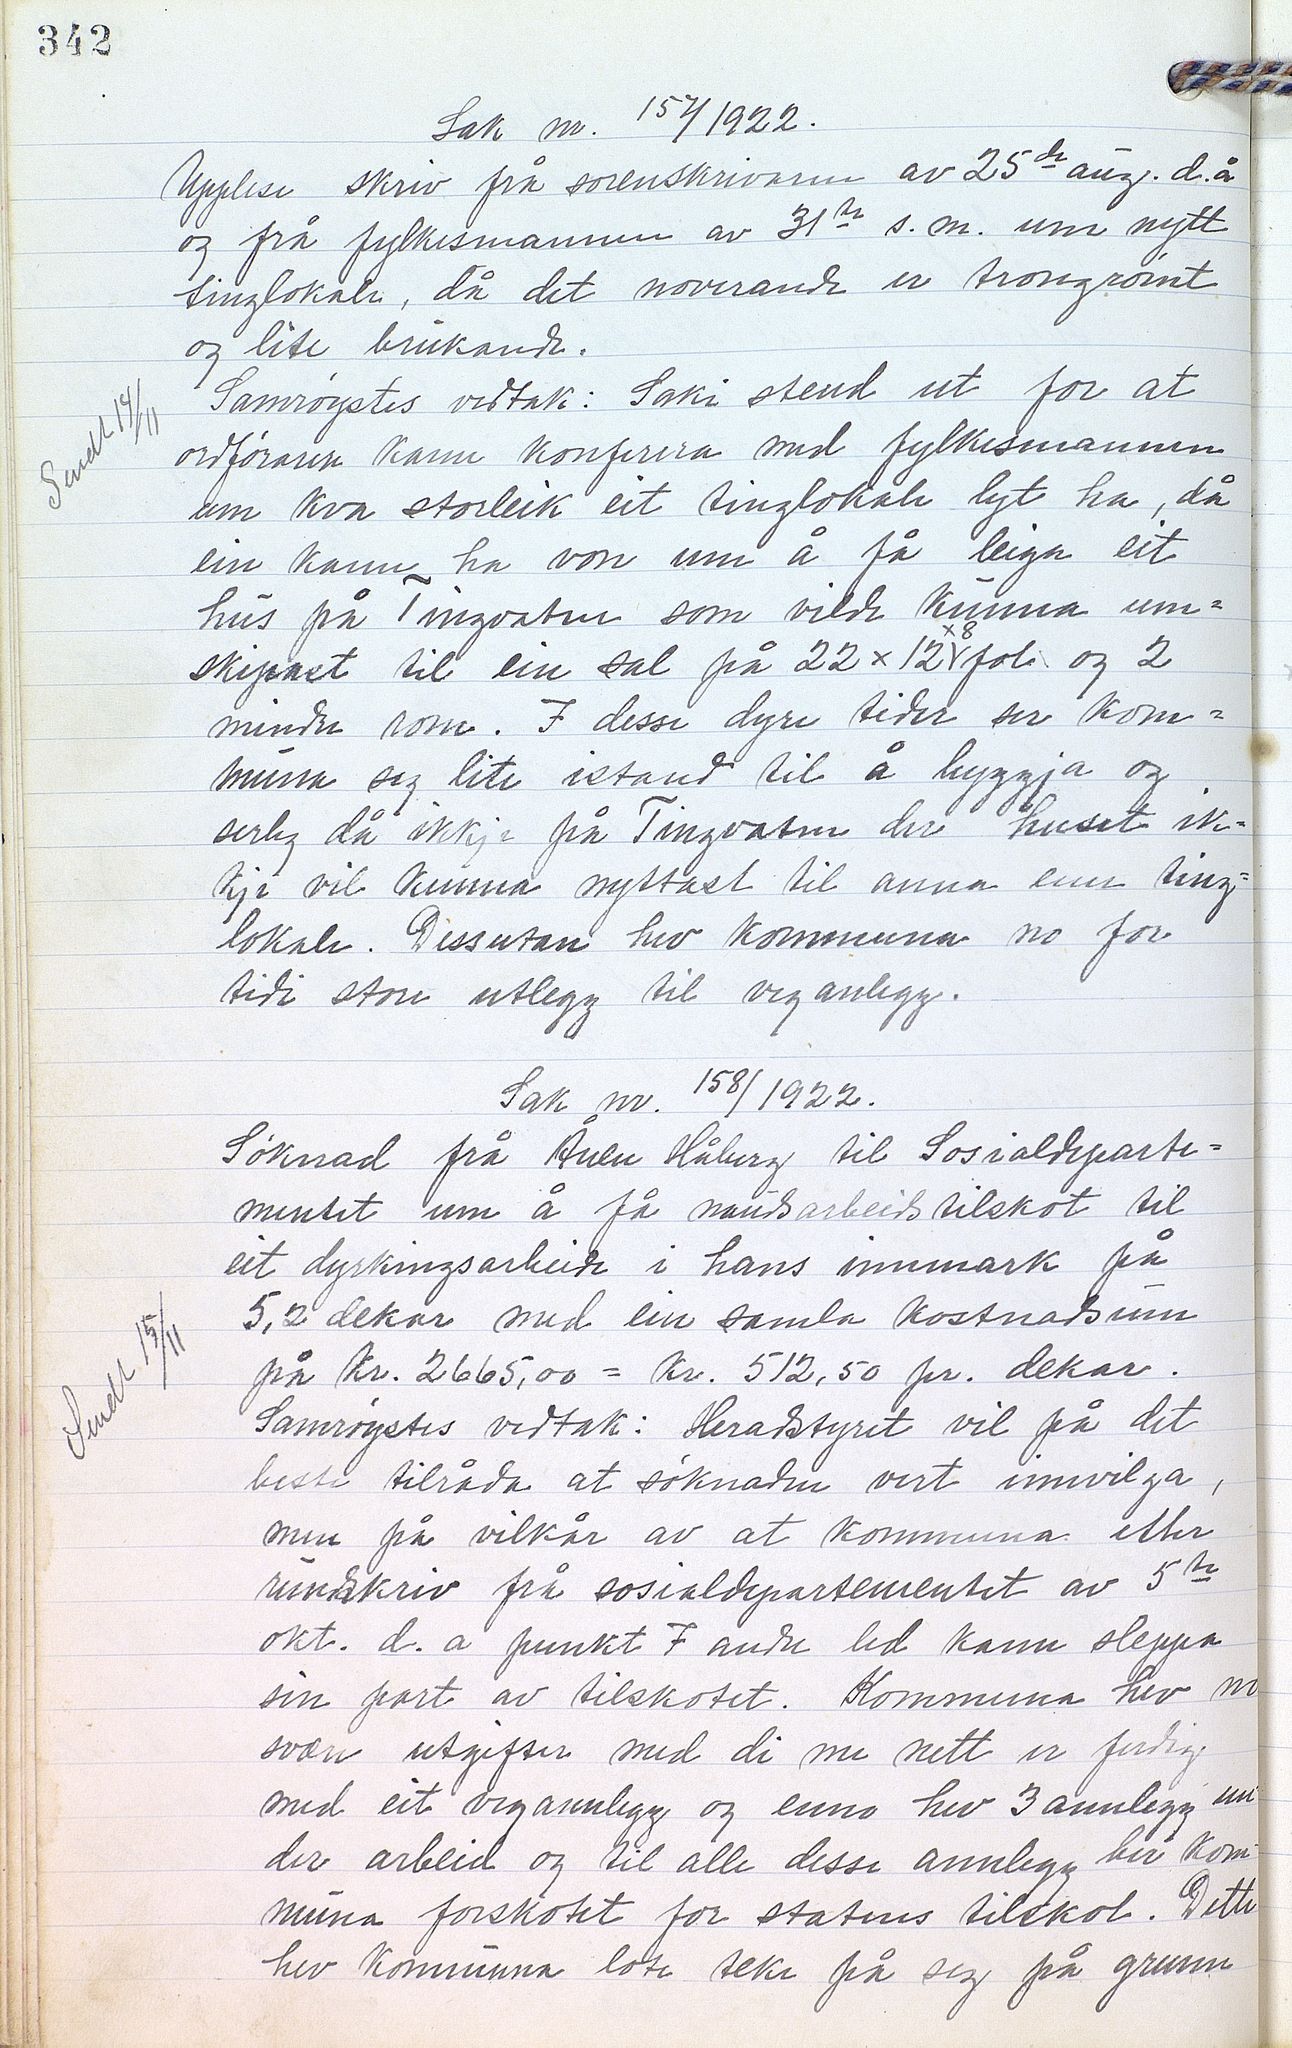 342
Sak nr. 157/1922.
Upplese skriv frå sorenskrivaren av 25de aug. d.å
og frå fylkesmannen av 31te s.m. um nytt
tinglokale, då det noverande er trongrømt
og lite brukande.
Sendt 14/11
Samrøystes vedtak: Saki stend ut for at
ordføraren kann konferera med fylkesmannen
um kva storleik eit tinglokale lyt ha, då
ein kann ha von um å få leiga eit
hus på Tingvatn som vilde kunna um=
skipast til ein sal på 22 x 12 x 8 fot og 2
mindre rom. I desse dyre tider ser kom=
muna seg lite istand til å byggja og
serleg då ikkje på Tingvatn der huset ik=
kje vil kunna nyttast til anna enn ting=
lokale. Dessutan hev kommuna no for
tidi store utlegg til veganlegg.
Sak nr. 158/1922.
Søknad frå Ånen Håberg til Sosialdeparte=
mentet um å få naudsarbeidstilskot til
eit dyrkingsarbeide i hans innmark på
5,2 dekar med ein samla kostnadsum
på kr. 2665,00 = kr. 512,50 pr. dekar.
Sendt 15/11
Samrøystes vedtak: Heradstyret vil på det
beste tilråda at søknaden vert innvilga,
men på vilkår av at kommuna etter
rundskriv frå sosialdepartementet av 5te
okt. d. a punkt I andre led kann sleppa
sin part av tilskotet. Kommuna hev no
svære utgifter med di me nett er ferdig
med eit vegannlegg og enno hev 3 annlegg un
der arbeid og til alle desse annlegg hev kom
muna forskotet for statens tilskot. Dette
hev kommuna lote teke på seg på grunn